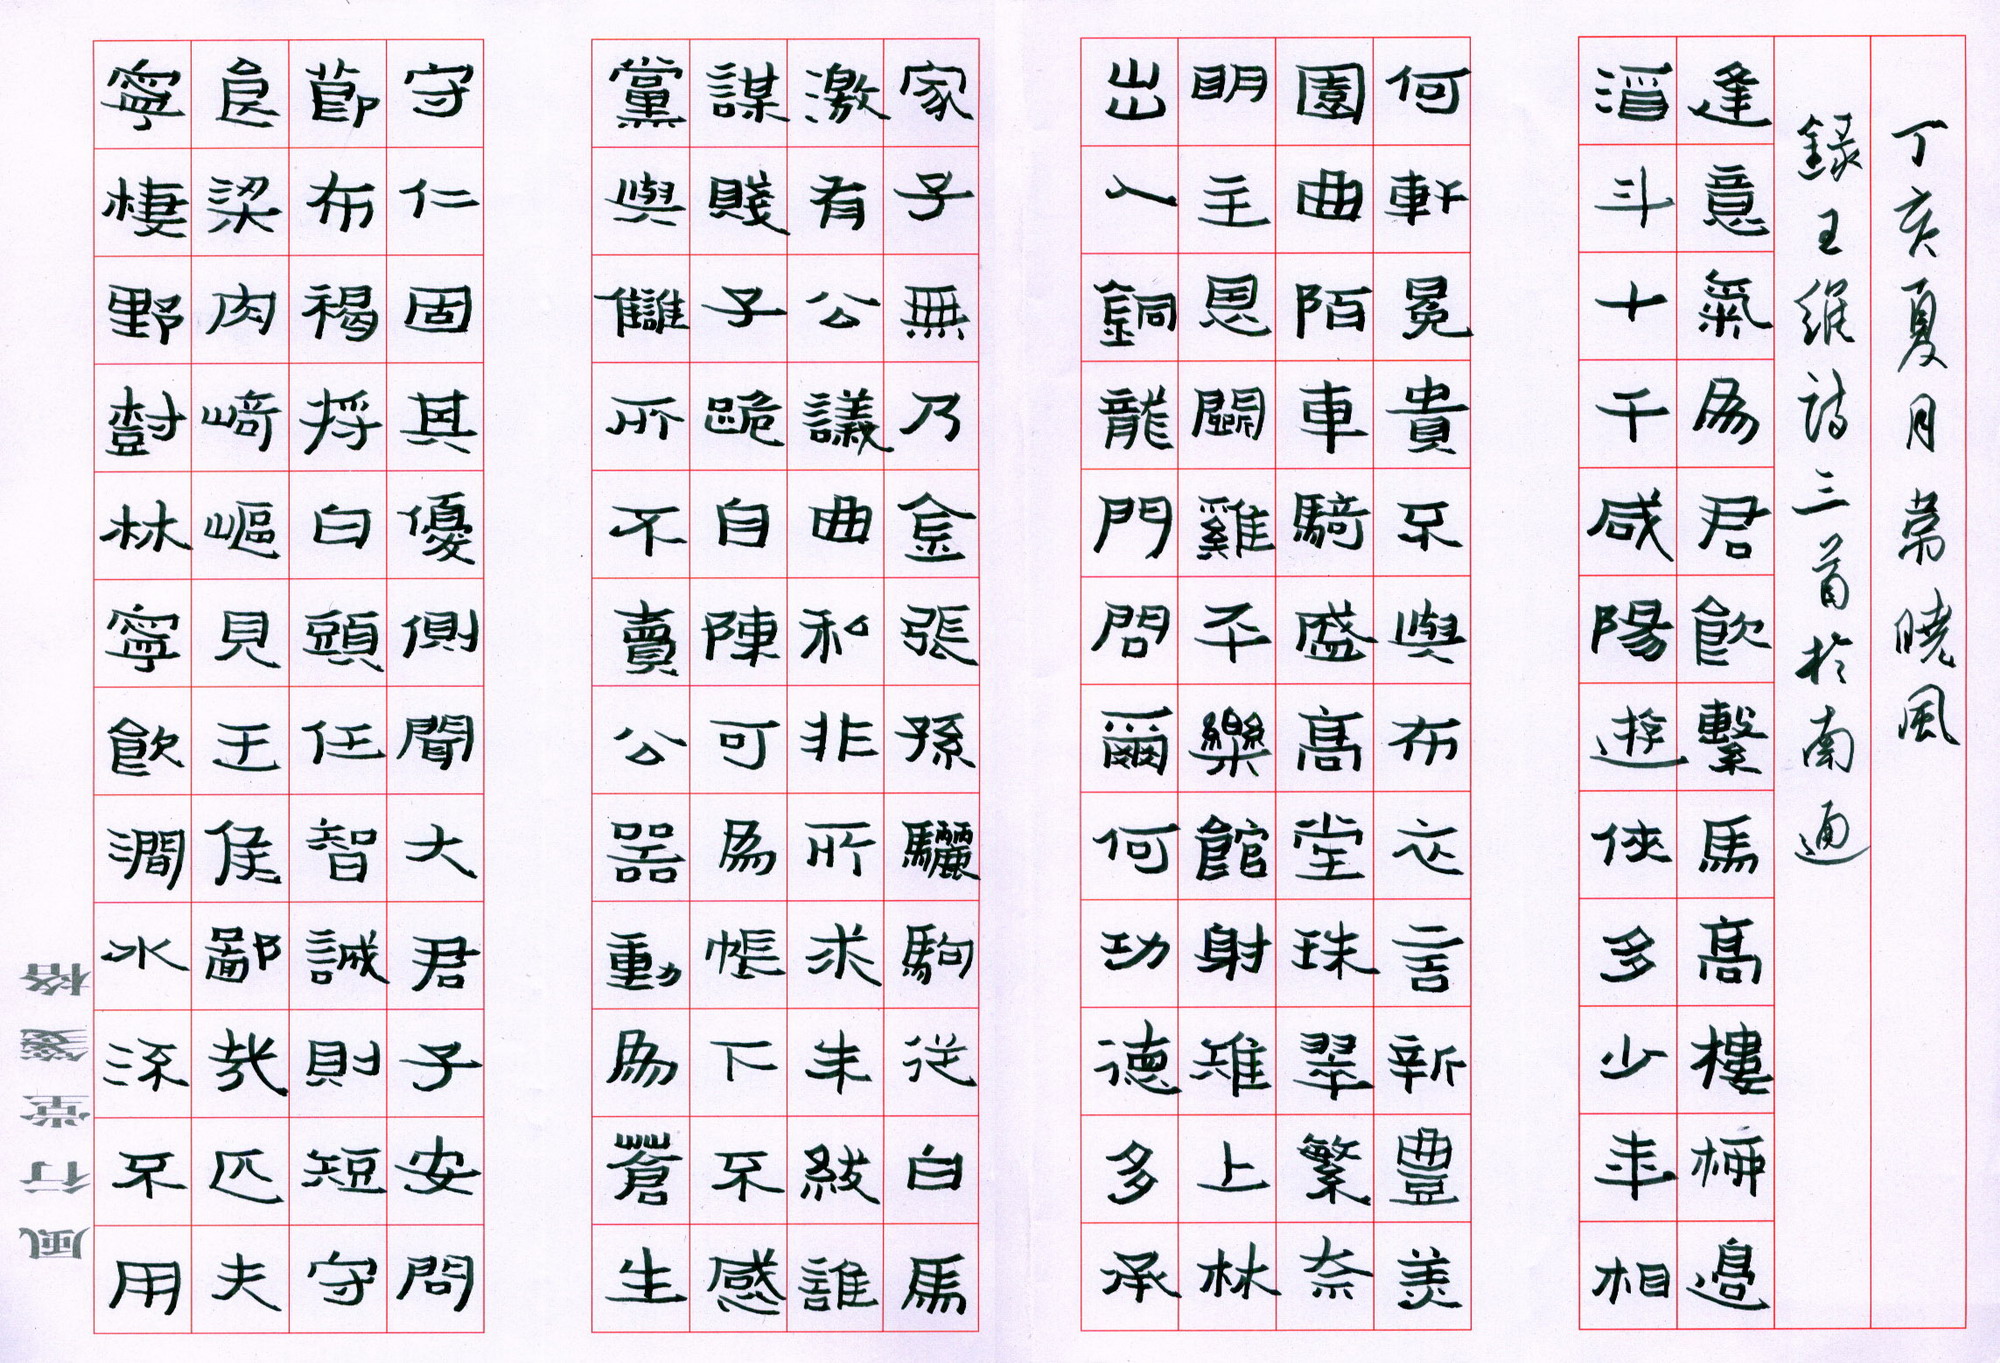 寧棲野樹林寧飲澗水流不用
食粱肉崎嶇見王侯鄙哉匹夫
節布褐將白頭任智誠則短守
守仁固其優側聞大君子安問
黨與讎所不賣公器動為蒼生
謀賤子跪自陳可為帳下不感
激有公議曲私非所求朱紱誰
家子無乃金張孫驪駒從白馬
出入銅龍門問爾何功德多承
明主恩鬭雞平樂館射雉上林
園曲陌車騎盛高堂珠翠繁奈
何軒冕貴不與布衣言新豐美
酒斗十千咸陽遊俠多少年相
逢意氣為君飲繫馬高樓柳邊
錄王維詩三首於南通
丁亥夏月常曉風
風行堂箋格